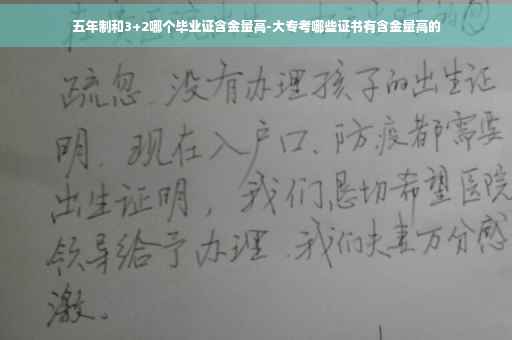 五年制和3+2哪个毕业证含金量高-大专考哪些证书有含金量高的
疏忽、没有办理孩子的出生证
明、现在入户口、防疫都需要
出生证明，我们恳切希望医院
领导给予办理、我们夫妻万分感
激。